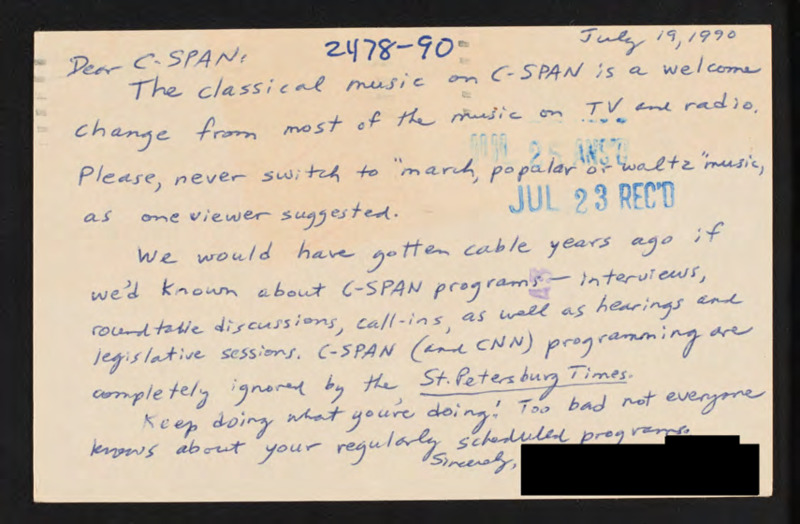 July 19, 1990
2478-90
Dear C-SPAN:
The classical music on C-SPAN is a welcome
change from most of the music on TV and radio.
JUL 25 ANS'D
Please, never switch to "march, popular or waltz" music,
JUL 23 REC'D
as one viewer suggested.
We would have gotten cable years ago if
we'd known about C-SPAN programs — interviews,
roundtable discussions, call-ins, as well as hearings and
legislative sessions. C-SPAN (and CNN) programming are
completely ignored by the St. Petersburg Times.
Keep doing what you're doing! Too bad not everyone
knows about your regularly scheduled programs.
Sincerely,